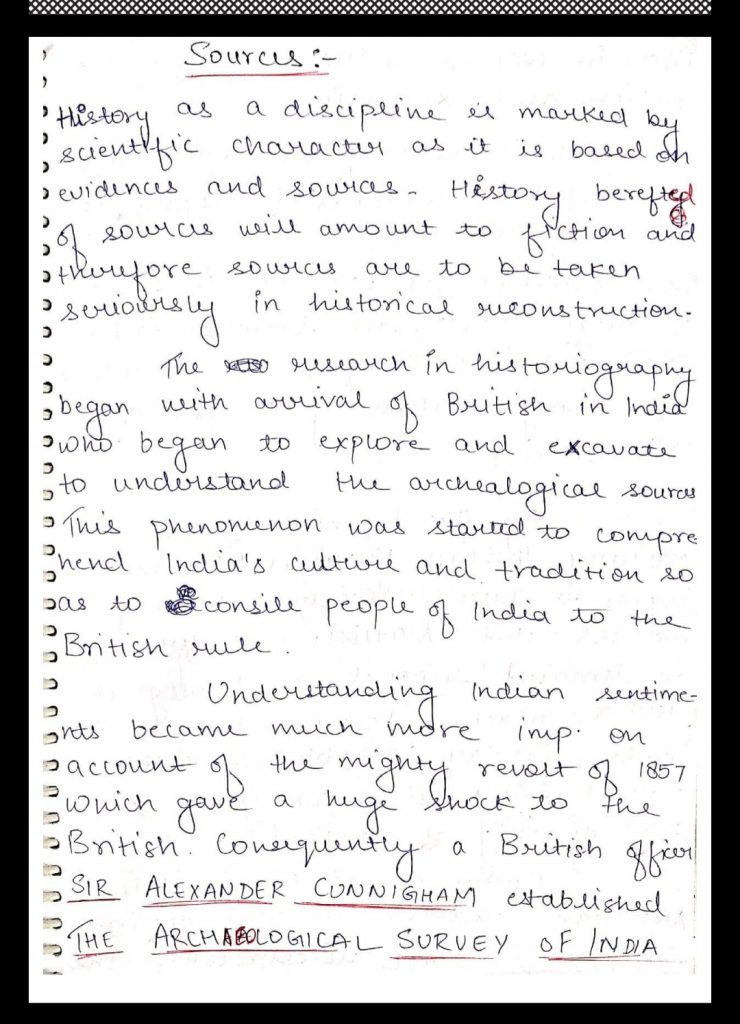 Sources:-
History as a discipline is marked by
scientific character as it is based on
evidences and sources. History berefted
of sources will amount to fiction and
therefore sources are to be taken
seriously in historical reconstruction.
The research in historiography
began with arrival of British in India
who began to explore and excavate
to understand the archealogical sources
This phenomenon was started to compre
hend India's culture and tradition so
as to consile people of India to the
British rule.
Understanding Indian sentime-
nts became much more imp. on
account of the mighty revolt of 1857
which gave a huge shock to the
British. Consequently a British officer
SIR ALEXANDER CUNNIGHAM established
THE ARCHAEOLOGICAL SURVEY OF INDIA